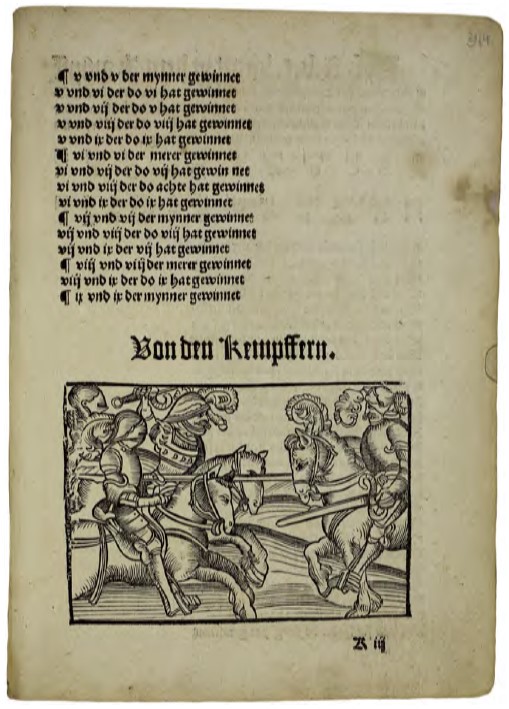 ¶ v vnd v der mynner gewinnet
v vnd vi der do vi hat gewinnet
v vnd vij der do v hat gewinnet
v vnd viij der do viij hat gewinnet
v vnd ix der do ix hat gewinnet
¶ vi vnd vi der merer gewinnet
vi vnd vij der do vij hat gewin net
vi vnd viij der do achte hat gewinnet
vi vnd ix der do ix hat gewinnet
¶ vij vnd vij der mynner gewinnet
vij vnd viij der do viij hat gewinnet
vij vnd ix der vij hat gewinnet
¶ viij vnd viij der merer gewinnet
viij vnd ix der do ix hat gewinnet
¶ ix vnd ix der mynner gewinnet
Von den Kempffern.
iij